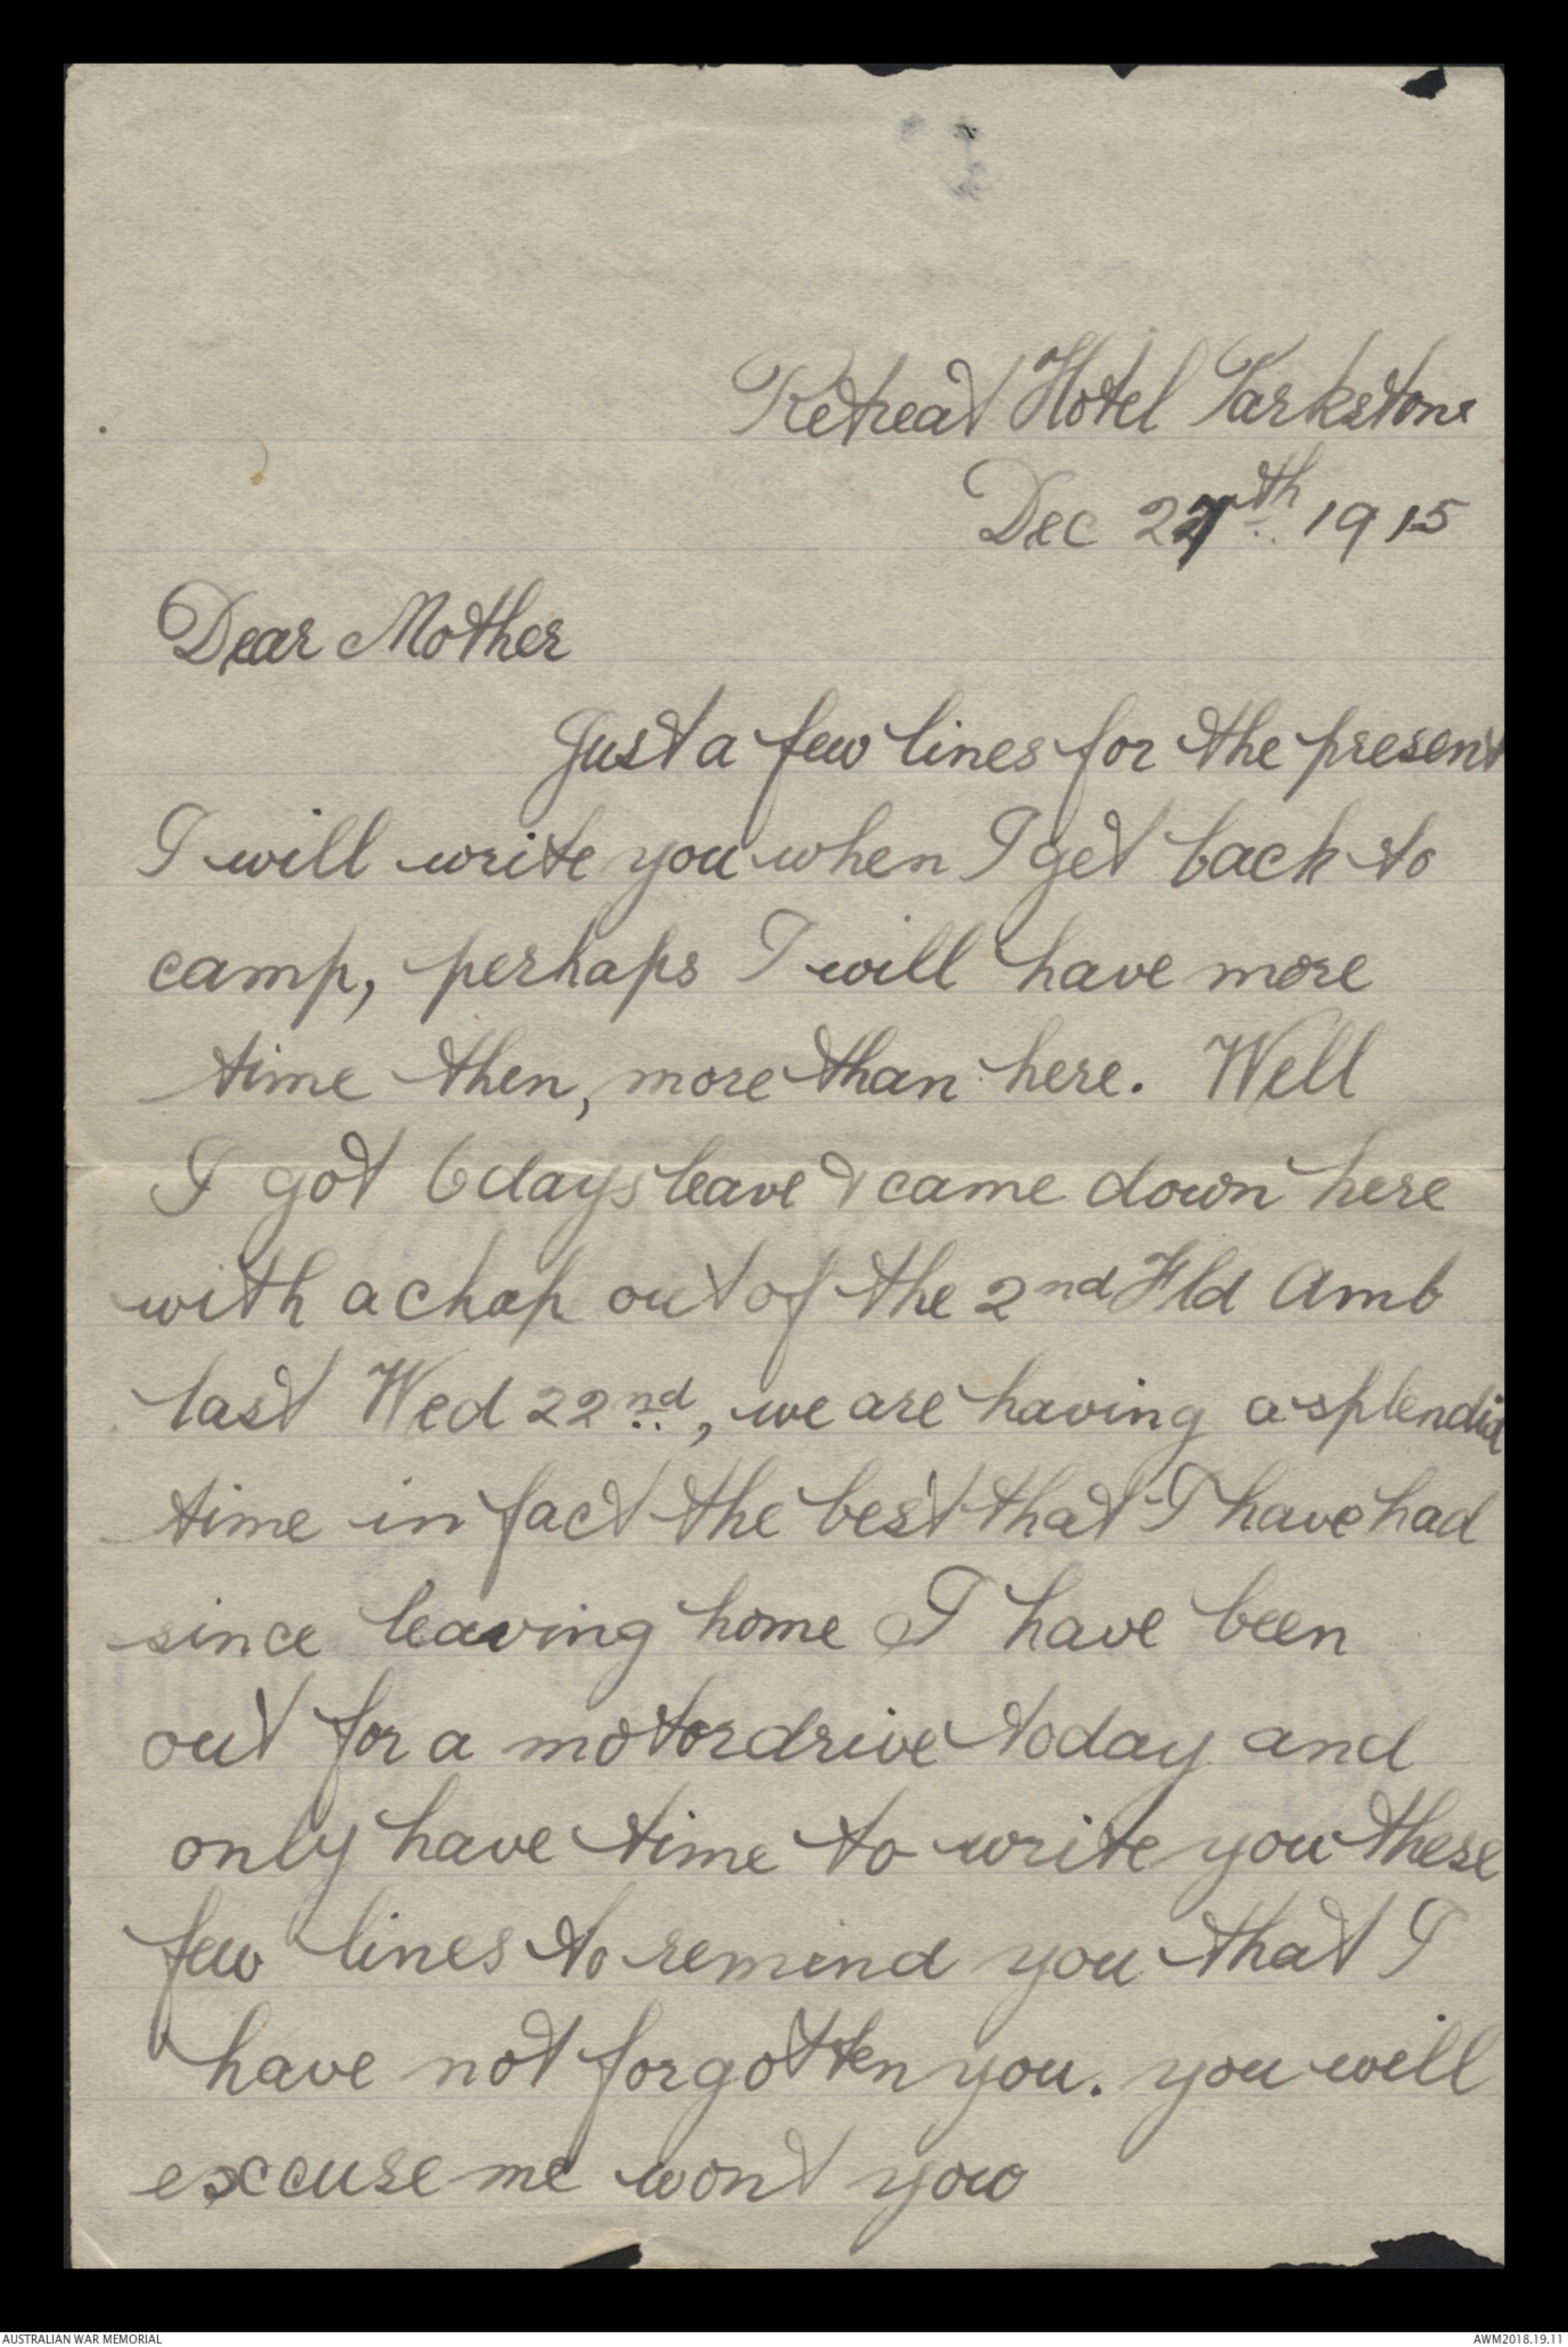 Retreat Hotel Parkstone
Dec 27th 1915
Dear Mother
Just a few lines for the present
I will write you when I get back to
camp, perhaps I will have more
time then, more than here. Well
I got 6 days leave & came down here
with a chap out of the 2nd Fld Amb
last Wed 22nd, we are having a splendid
time in fact the best that I have had
since leaving home I have been
out for a motordrive today and
only have time to write you these
few lines to remind you that I
have not forgotten you. you will
excuse me wont you
AUSTRALIAN WAR MEMORIAL
AWM2018.19.11